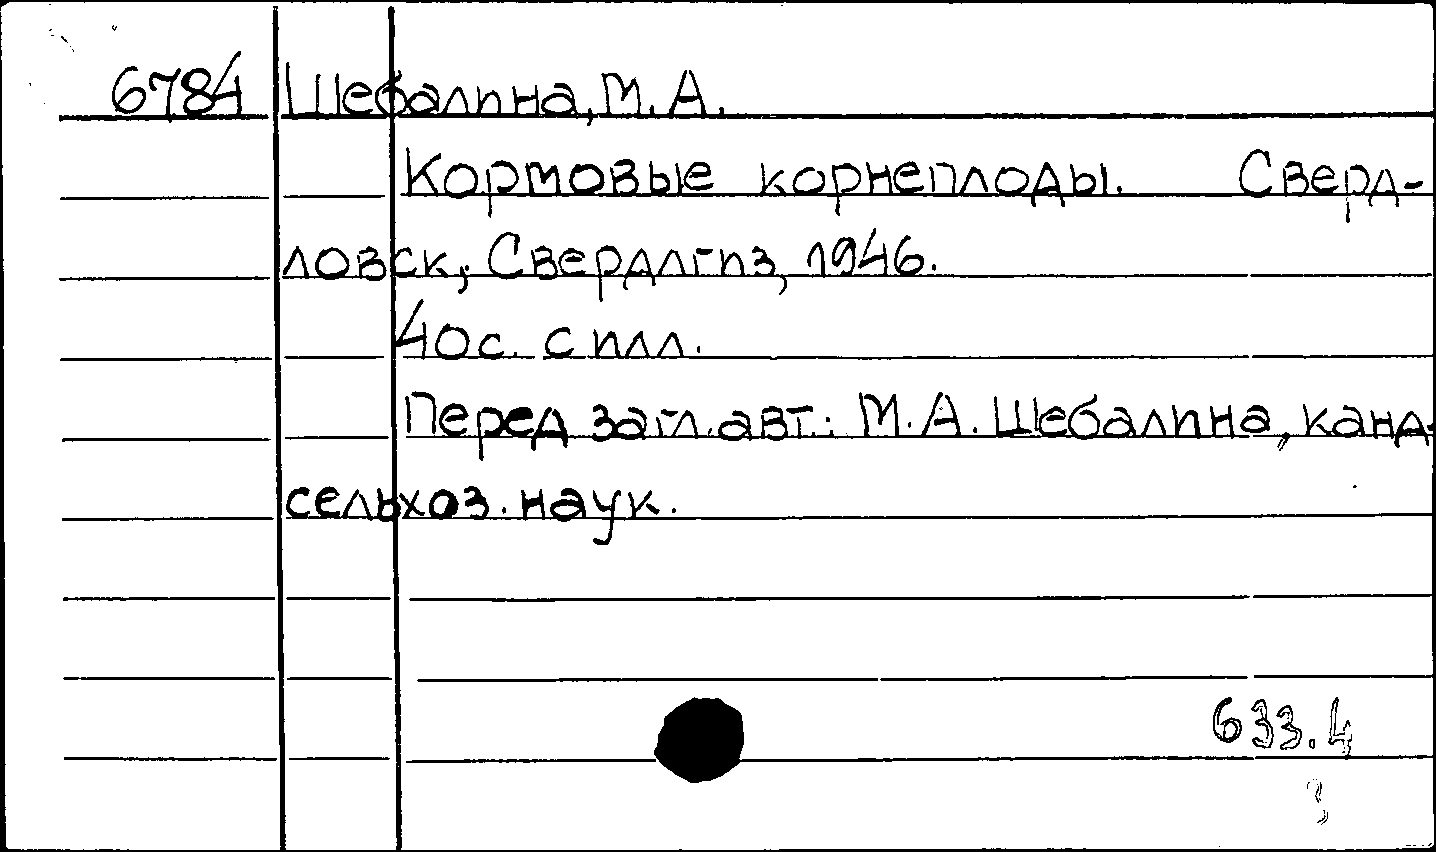 6784 Шебалина, М. А.
Кормовые корнеплоды. Сверд-
ловск, Свердлгиз, 1946.
40 с. с илл.
Перед загл. авт.: М. А. Шебалина, канд.
сельхоз. наук.
633.4